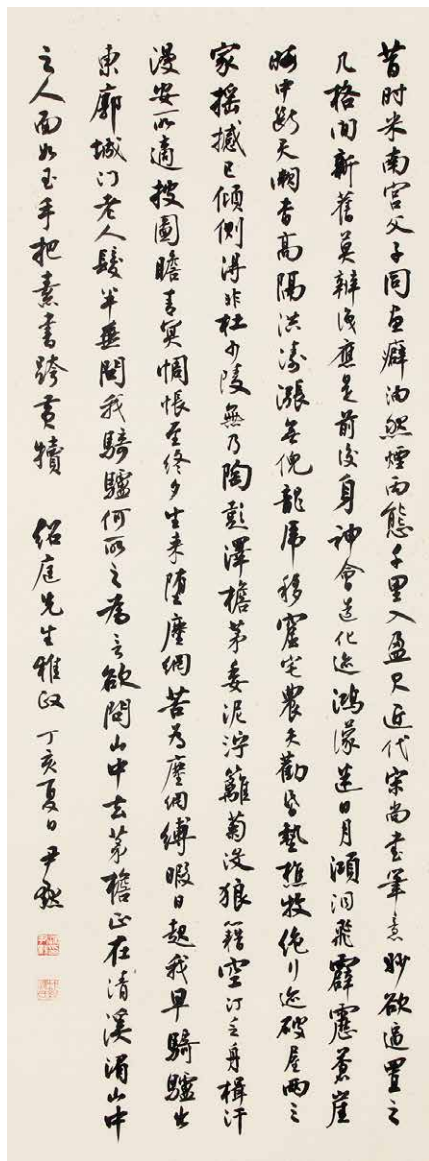 昔时米南宫父子同画癖油然煙雨態千里入盈尺近代宋尚書筆意妙欲逼置之
几格间新舊莫辨识應是前後身神會造化迹鴻濛迷日月澒洞飛霹靂蒼崖
晦中斷天濶杳高隔洪涛漲無倪龍虎移窟宅農夫勸昏墊樵牧絶行迹破屋兩三
家摇撼已傾側得非杜少陵無乃陶彭澤檐茅委泥泞籬菊没狼籍空汀立舟楫汗
漫安所適披圖瞻青冥惆悵至终夕生来堕塵網苦为塵網縛暇日起我早騎驢出
東廓城门老人髮半垂問我騎驢何所之为言欲問山中去茅檐正在清溪湄山中
之人面如玉手把素書跨黄犢 绍庭先生雅政 丁亥夏日 尹默